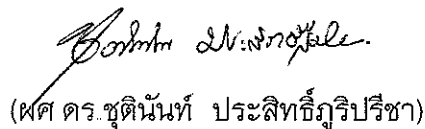 (ผศ.ดร.ชุตินันท์ ประสิทธิ์ภูริปรีชา)